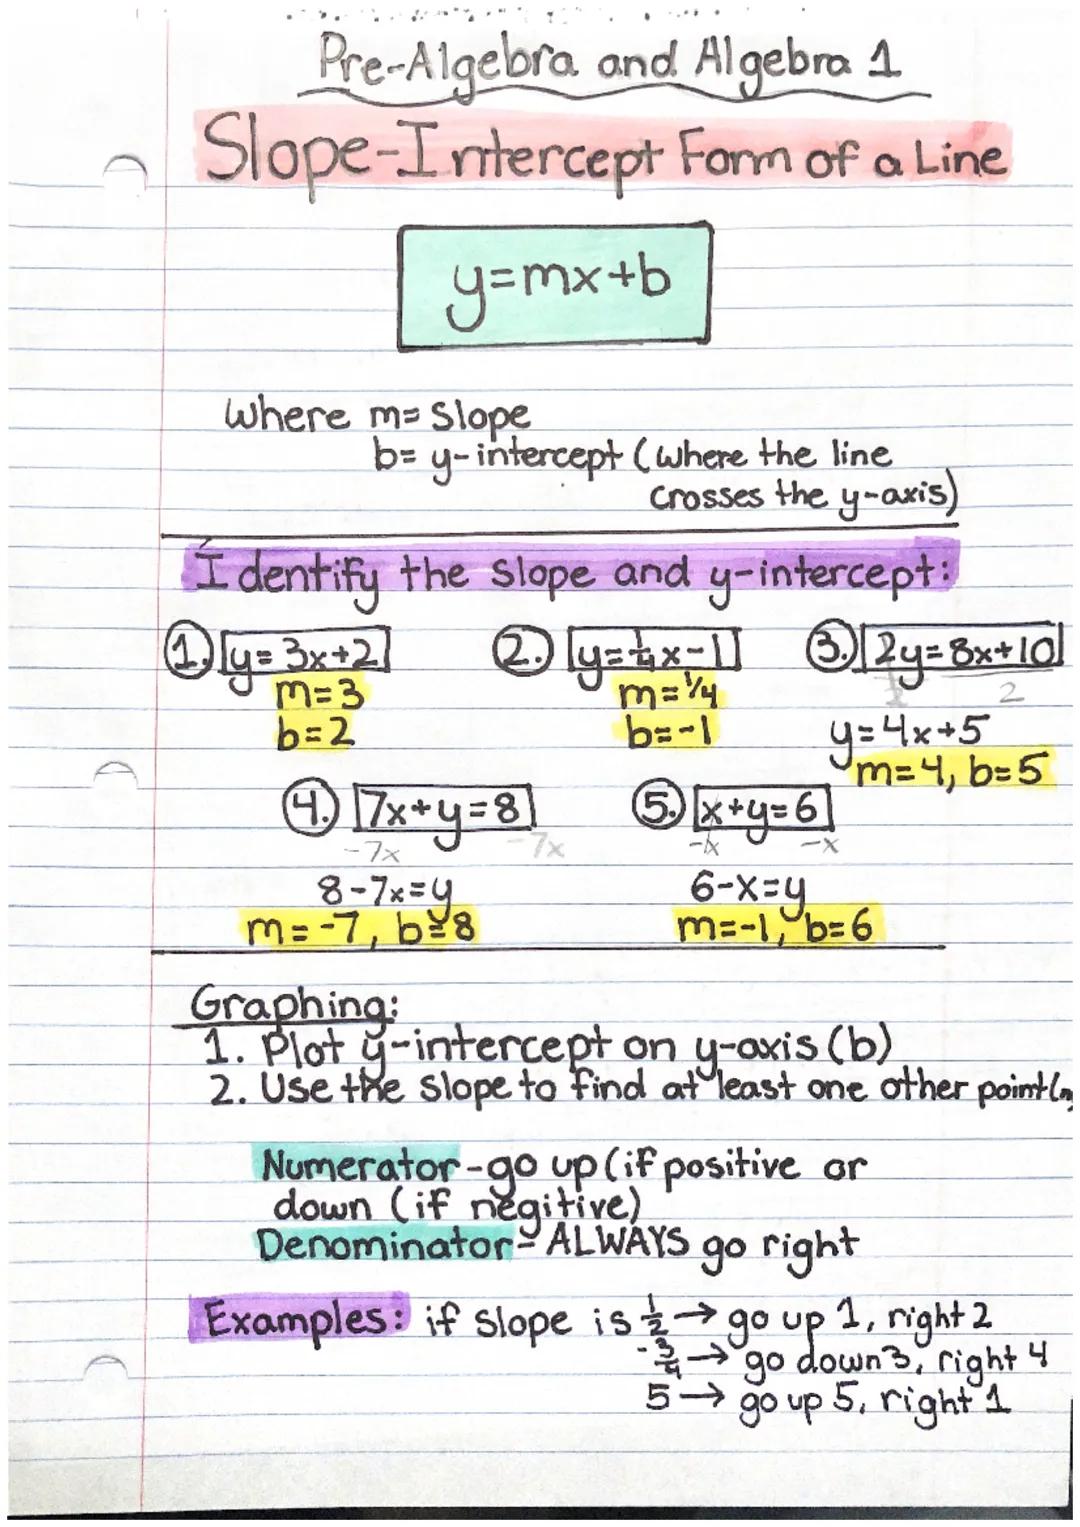 Pre-Algebra and Algebra 1
Slope-Intercept Form of a Line
y=mx+b
Where m= Slope
b= y-intercept (where the line
crosses the y-axis)
Identify the slope and y-intercept:
1. y= 3x+2 2. y=1/4x-1 3. 2y=8x+10
2 2
m=3 m=1/4
b=2 b=-1 y=4x+5
m=4, b=5
4. 7x+y=8 5. x+y=6
-7x -7x -x -x
8-7x=y 6-x=y
m=-7, b=8 m=-1, b=6
Graphing:
1. Plot y-intercept on y-axis (b)
2. Use the slope to find at least one other point
Numerator-go up (if positive or
down (if negitive)
Denominator- ALWAYS go right
Examples: if slope is 1/2 → go up 1, right 2
-3/4 → go down 3, right 4
5 → go up 5, right 1